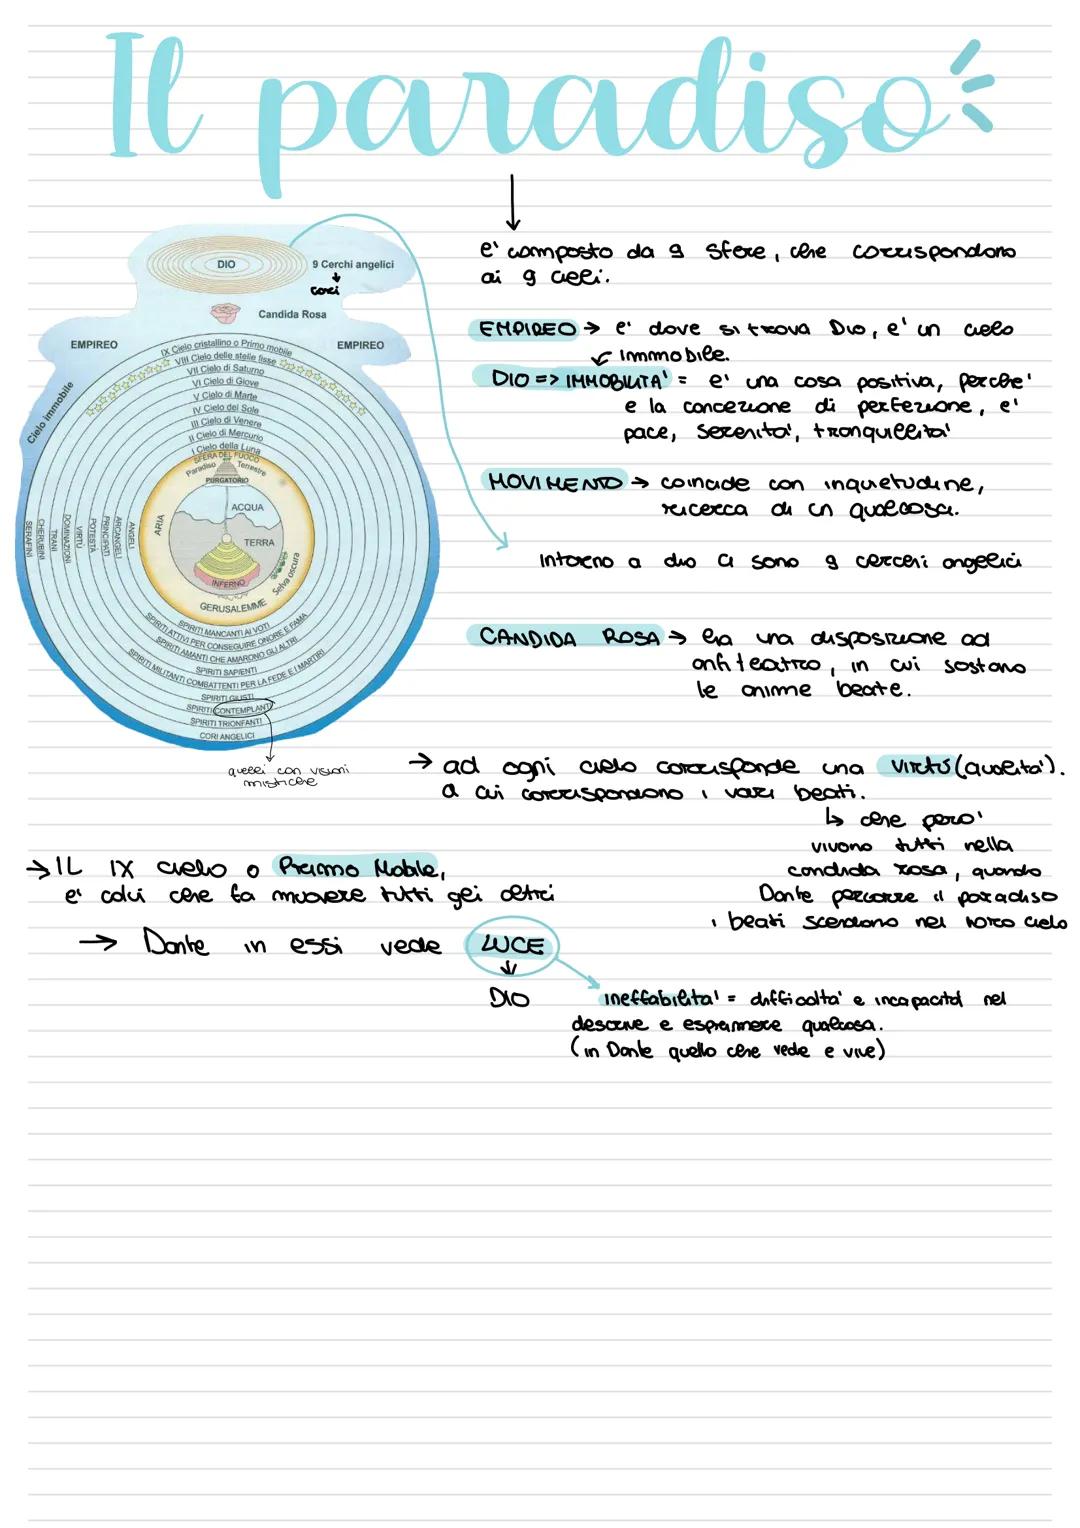 Il paradiso
e' composto da 9 sfere, che corrispondono
ai 9 cieli.
EMPIREO → e' dove si trova Dio, e' un cielo
immobile.
DIO => IMMOBILITA' = e' una cosa positiva, perche'
e la concezione di perfezione, e'
pace, serenita', tranquillita'
MOVIMENTO → coincide con inquietudine,
ricerca di un qualcosa.
Intorno a dio ci sono 9 cerchi angelici
CANDIDA ROSA → ha una disposizione ad
anfiteatro, in cui sostano
le anime beate.
DIO
9 Cerchi angelici
cori
Candida Rosa
EMPIREO
EMPIREO
Cielo immobile
IX Cielo cristallino o Primo mobile
VIII Cielo delle stelle fisse
VII Cielo di Saturno
VI Cielo di Giove
V Cielo di Marte
IV Cielo del Sole
III Cielo di Venere
II Cielo di Mercurio
I Cielo della Luna
SFERA DEL FUOCO
Paradiso Terrestre
PURGATORIO
ACQUA
ARIA
TERRA
INFERNO
Selva oscura
GERUSALEMME
SERAFINI
CHERUBINI
TRANI
DOMINAZIONI
VIRTÙ
POTESTÀ
PRINCIPATI
ARCANGELI
ANGELI
SPIRITI MANCANTI AI VOTI
SPIRITI ATTIVI PER CONSEGUIRE ONORE E FAMA
SPIRITI AMANTI CHE AMARONO GLI ALTRI
SPIRITI SAPIENTI
SPIRITI MILITANTI COMBATTENTI PER LA FEDE E I MARTIRI
SPIRITI GIUSTI
SPIRITI CONTEMPLANTI
SPIRITI TRIONFANTI
CORI ANGELICI
quelli con visioni
mistiche
→ ad ogni cielo corrisponde una virtú (qualita').
a cui corrispondono i vari beati.
↳ che pero'
vivono tutti nella
candida rosa, quando
Dante percorre il paradiso
i beati scendono nel loro cielo
→ IL IX cielo o Primo Mobile,
e' colui che fa muovere tutti gli altri
→ Dante in essi vede LUCE
↓
DIO
ineffabilita' = difficolta' e incapacità nel
descrive e esprimere qualcosa.
(in Dante quello che vede e vive)